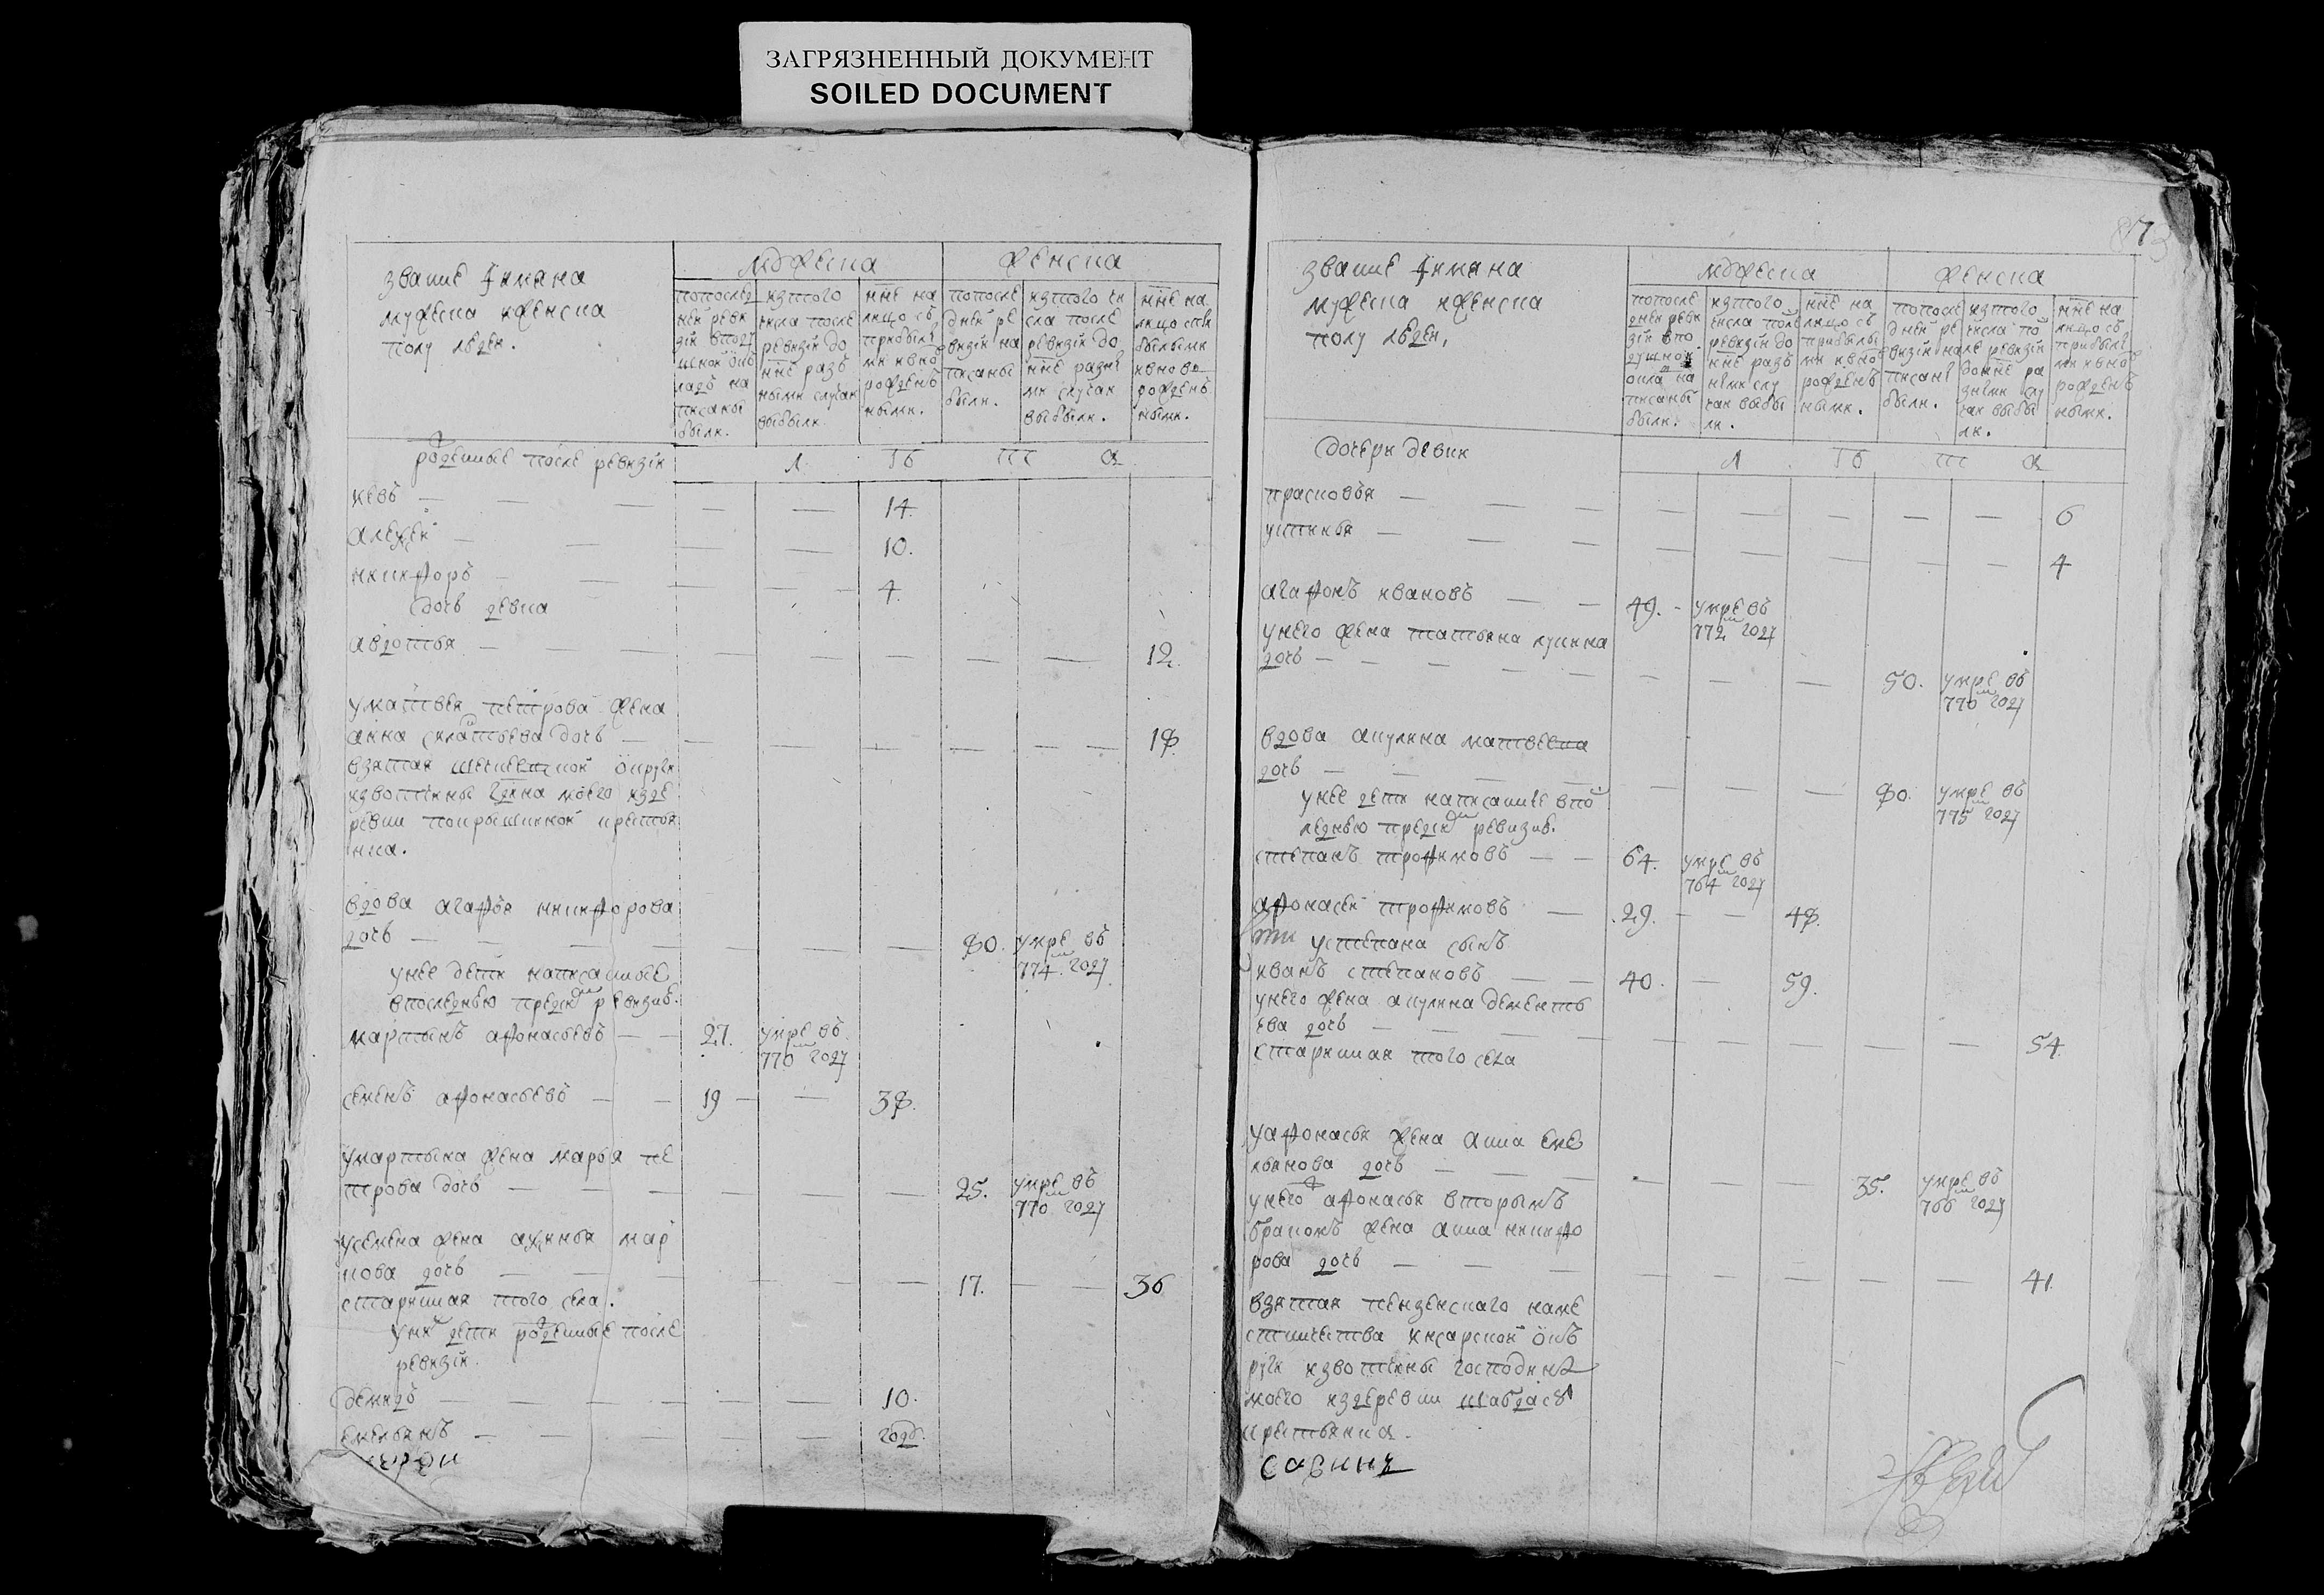 ЗАГРЯЗНЕННЫЙ ДОКУМЕНТ
SOILED DOCUMENT
звание і имяна
мужеска и женска
полу людеи.
мужеска
женска
попослед
неи реви
зіи вподу
шнои ок
ладъ на
писаны
были.
изтого
числа после
ревизіи до
нне разъ
ными случаи
выбыли
нне на
лицо съ
прибылы
ми и внов
рожденъ
ными.
попосле
днеи ре
визіи на
писаны
были.
изтого чи
сла после
ревизіи до
нне разны
ми случаи
выбыли.
нне на
лицо спри
былыми
и внов
рожденъ
ными.
рожденные после ревизіи
л
лѣ
т
а
иевъ
14.
алеѯеи
10.
никифоръ
4.
дочь девка
авдотья
12.
уматвея петрова жена
анна
дочь
18.
взятая
округи
извотчины
моего изде
ревни
крестья
нка.
вдова агафья никифорова
дочь
80.
умре въ
774м году
унее дети написанные
впоследнею пред сим ревизию.
мартынъ афонасьевъ
27.
умре въ
770м году
семенъ афонасьевъ
19
38.
умартына жена марья пе
трова дочь
25.
умре въ
770м году
усемена жена аѯинья мар
кова дочь
17.
36
старинная того села.
уних дети рожденные после
ревизіи.
демидъ
10.
емельянъ
годъ.
873
звание і имяна
мужеска и женска
полу людеи.
мужеска
женска
попосле
днеи реви
зіи впо
душнои
оклад на
писаны
были.
изтого
числа после
ревизіи до
нне разъ
ными слу
чаи выбы
ли.
нне на
лицо съ
прибылы
ми и внов
рожденъ
ными.
попосле
днеи ре
визіи на
писаны
были.
изтого
числа по
сле ревизіи
до нне ра
зными слу
чаи выбы
ли.
нне на
лицо съ
прибылы
ми и внов
рожденъ
ными.
дочери девки
л
лѣ
т
а
прасковья
6
устинья
4
агафонъ ивановъ
49.
умре въ
772м году
унего жена татьяна лукина
дочь
50.
умре въ
770м году
вдова акулина матвеева
дочь
80.
умре въ
775м году
унее дети написанные впо
леднею пред сим ревизию.
степанъ трофимовъ
64.
умре въ
764м году
афонасеи трофимовъ
29.
48.
устепана сынъ
иванъ степановъ
40.
59.
унего жена акулина дементь
ева дочь
54.
старинная того села
уафонасья жена анна еме
льянова дочь
35.
умре въ
766м году
унего ж афонасья вторымъ
бракомъ жена анна никифо
рова дочь
41.
взятая пензенскаго наме
стничества инсарскои окъ
руги извотчины господина
моего издеревни шадыма
крестьянка.
савинъ